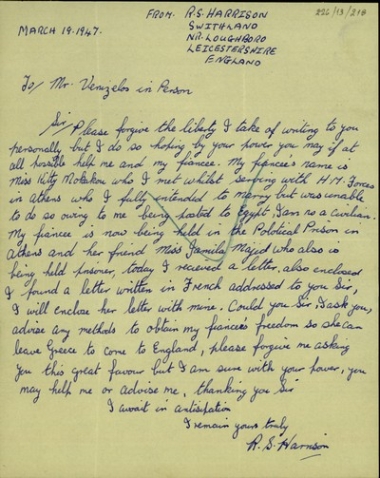 FROM. R.S. HARRISON
226/13/218
SWITHLAND
MARCH 19. 1947.
NR. LOUGHBORO
LEICESTERSHIRE
ENGLAND
To/ Mr. Venizelos in Person
Sir, Please forgive the liberty I take of writing to you
personally but I do so hoping by your power you may if at
all possible help me and my fiancee. My fiancee's name is
Miss Kitty who I met whilst serving with H M Forces
in athens who I fully intended to marry but was unable
to do so owing to me being posted to Egypt, I am no a civilian.
My fiancee is now being held in the Polotical Prison in
athens and her friend Miss Jamila Majid who also is
being held prisoner, today I recieved a letter, also enclosed
I found a letter written in French addressed to you Sir,
I will enclose her letter with mine. Could you Sir, I ask you,
advise any methods to obtain my fiancees freedom so she can
leave Greece to come to England, please forgive me asking
you this great favour but I am sure with your power, you
may help me or advise me, thanking you Sir
I await in antisipation
I remain yours truly
R. S. Harrison